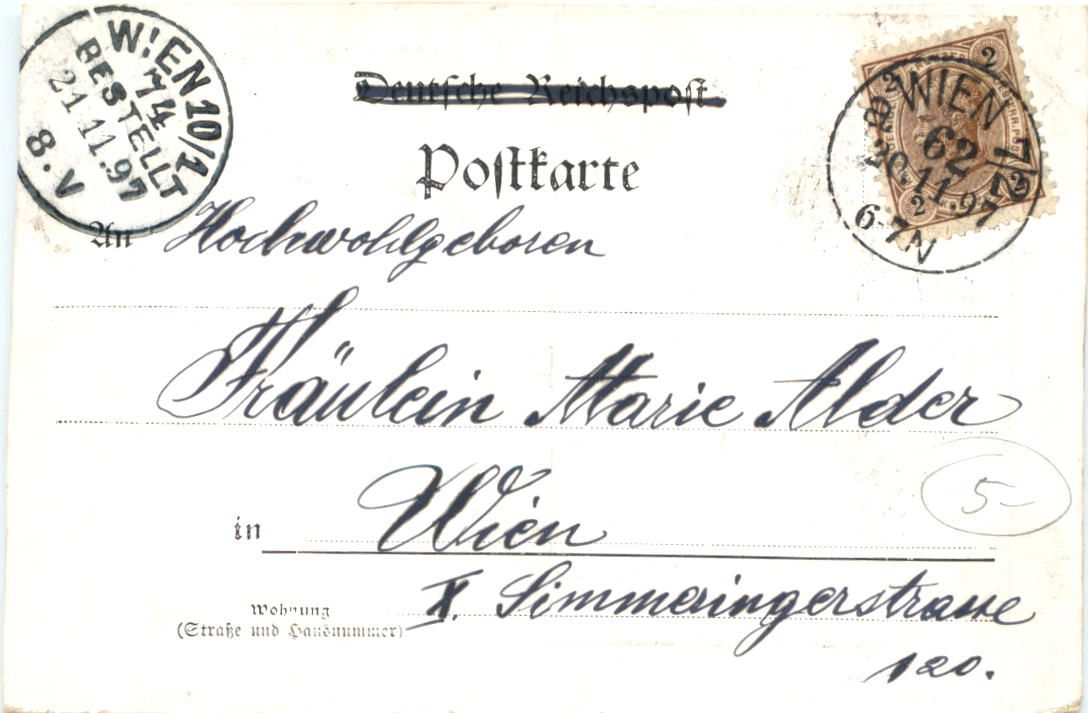 WIEN 10/1
74
BESTELLT
21.11.97
8.V
Deutsche Reichspost
2 2
WIEN
62
20.11.97
6-7N
2
Postkarte
An Hochwohlgeboren
Fräulein Marie Alder
5-
in Wien
Wohnung
(Straße und Hausnummer)
X. Simmeringerstrasse
120.